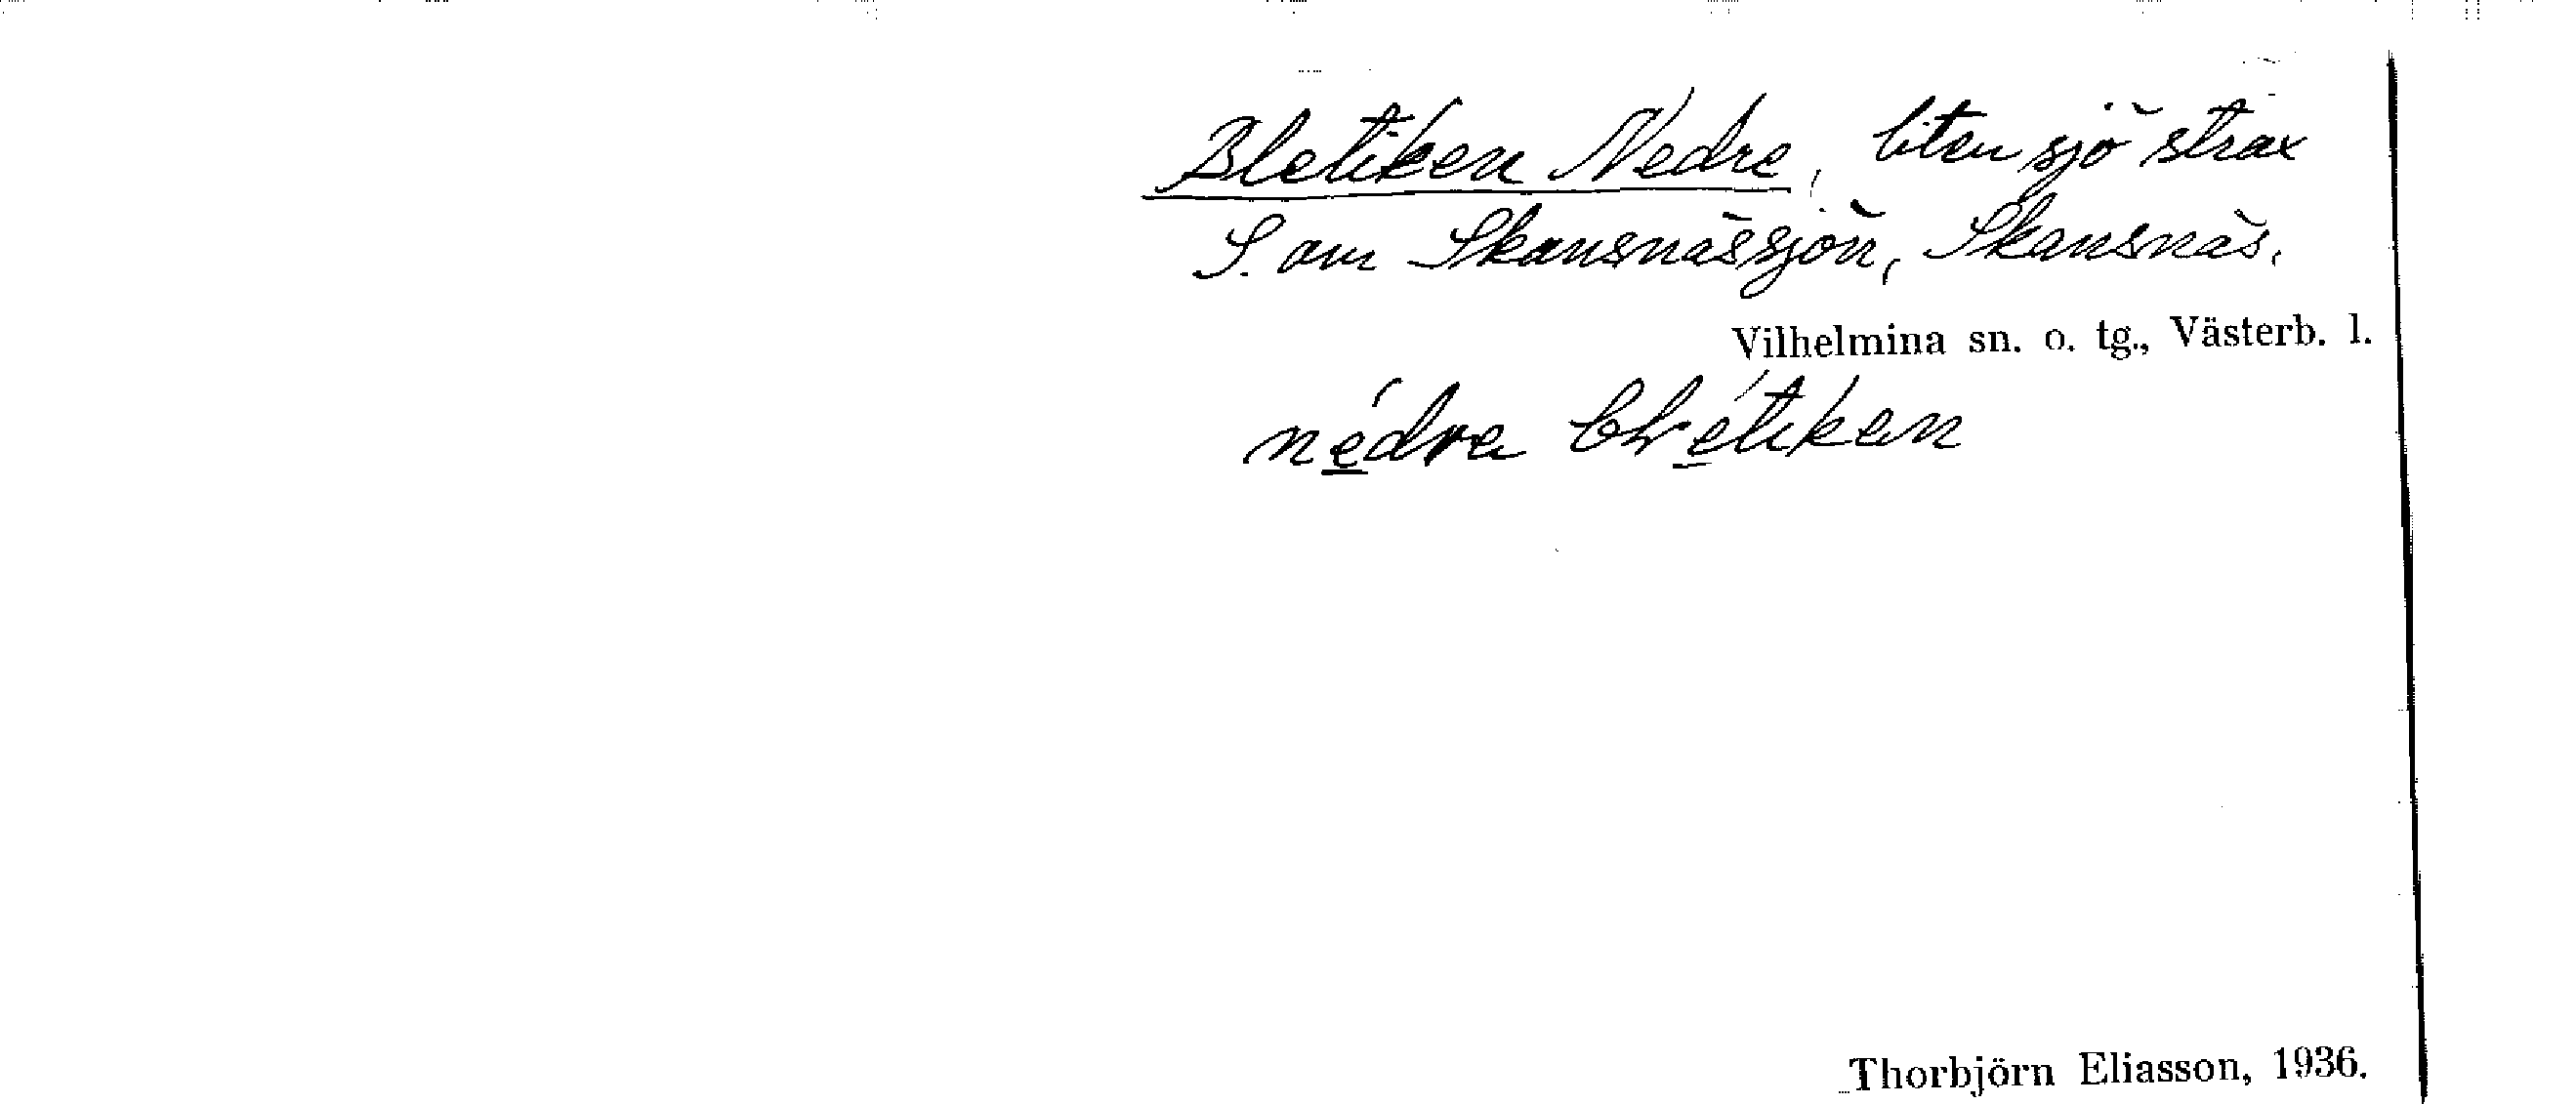 Bletiken Nedre, liten sjö strax
S. om Skansnässjön, Skansnäs.
Vilhelmina sn. o. tg., Västerb. l.
nédra blétiken
Thorbjörn Eliasson, 1936.